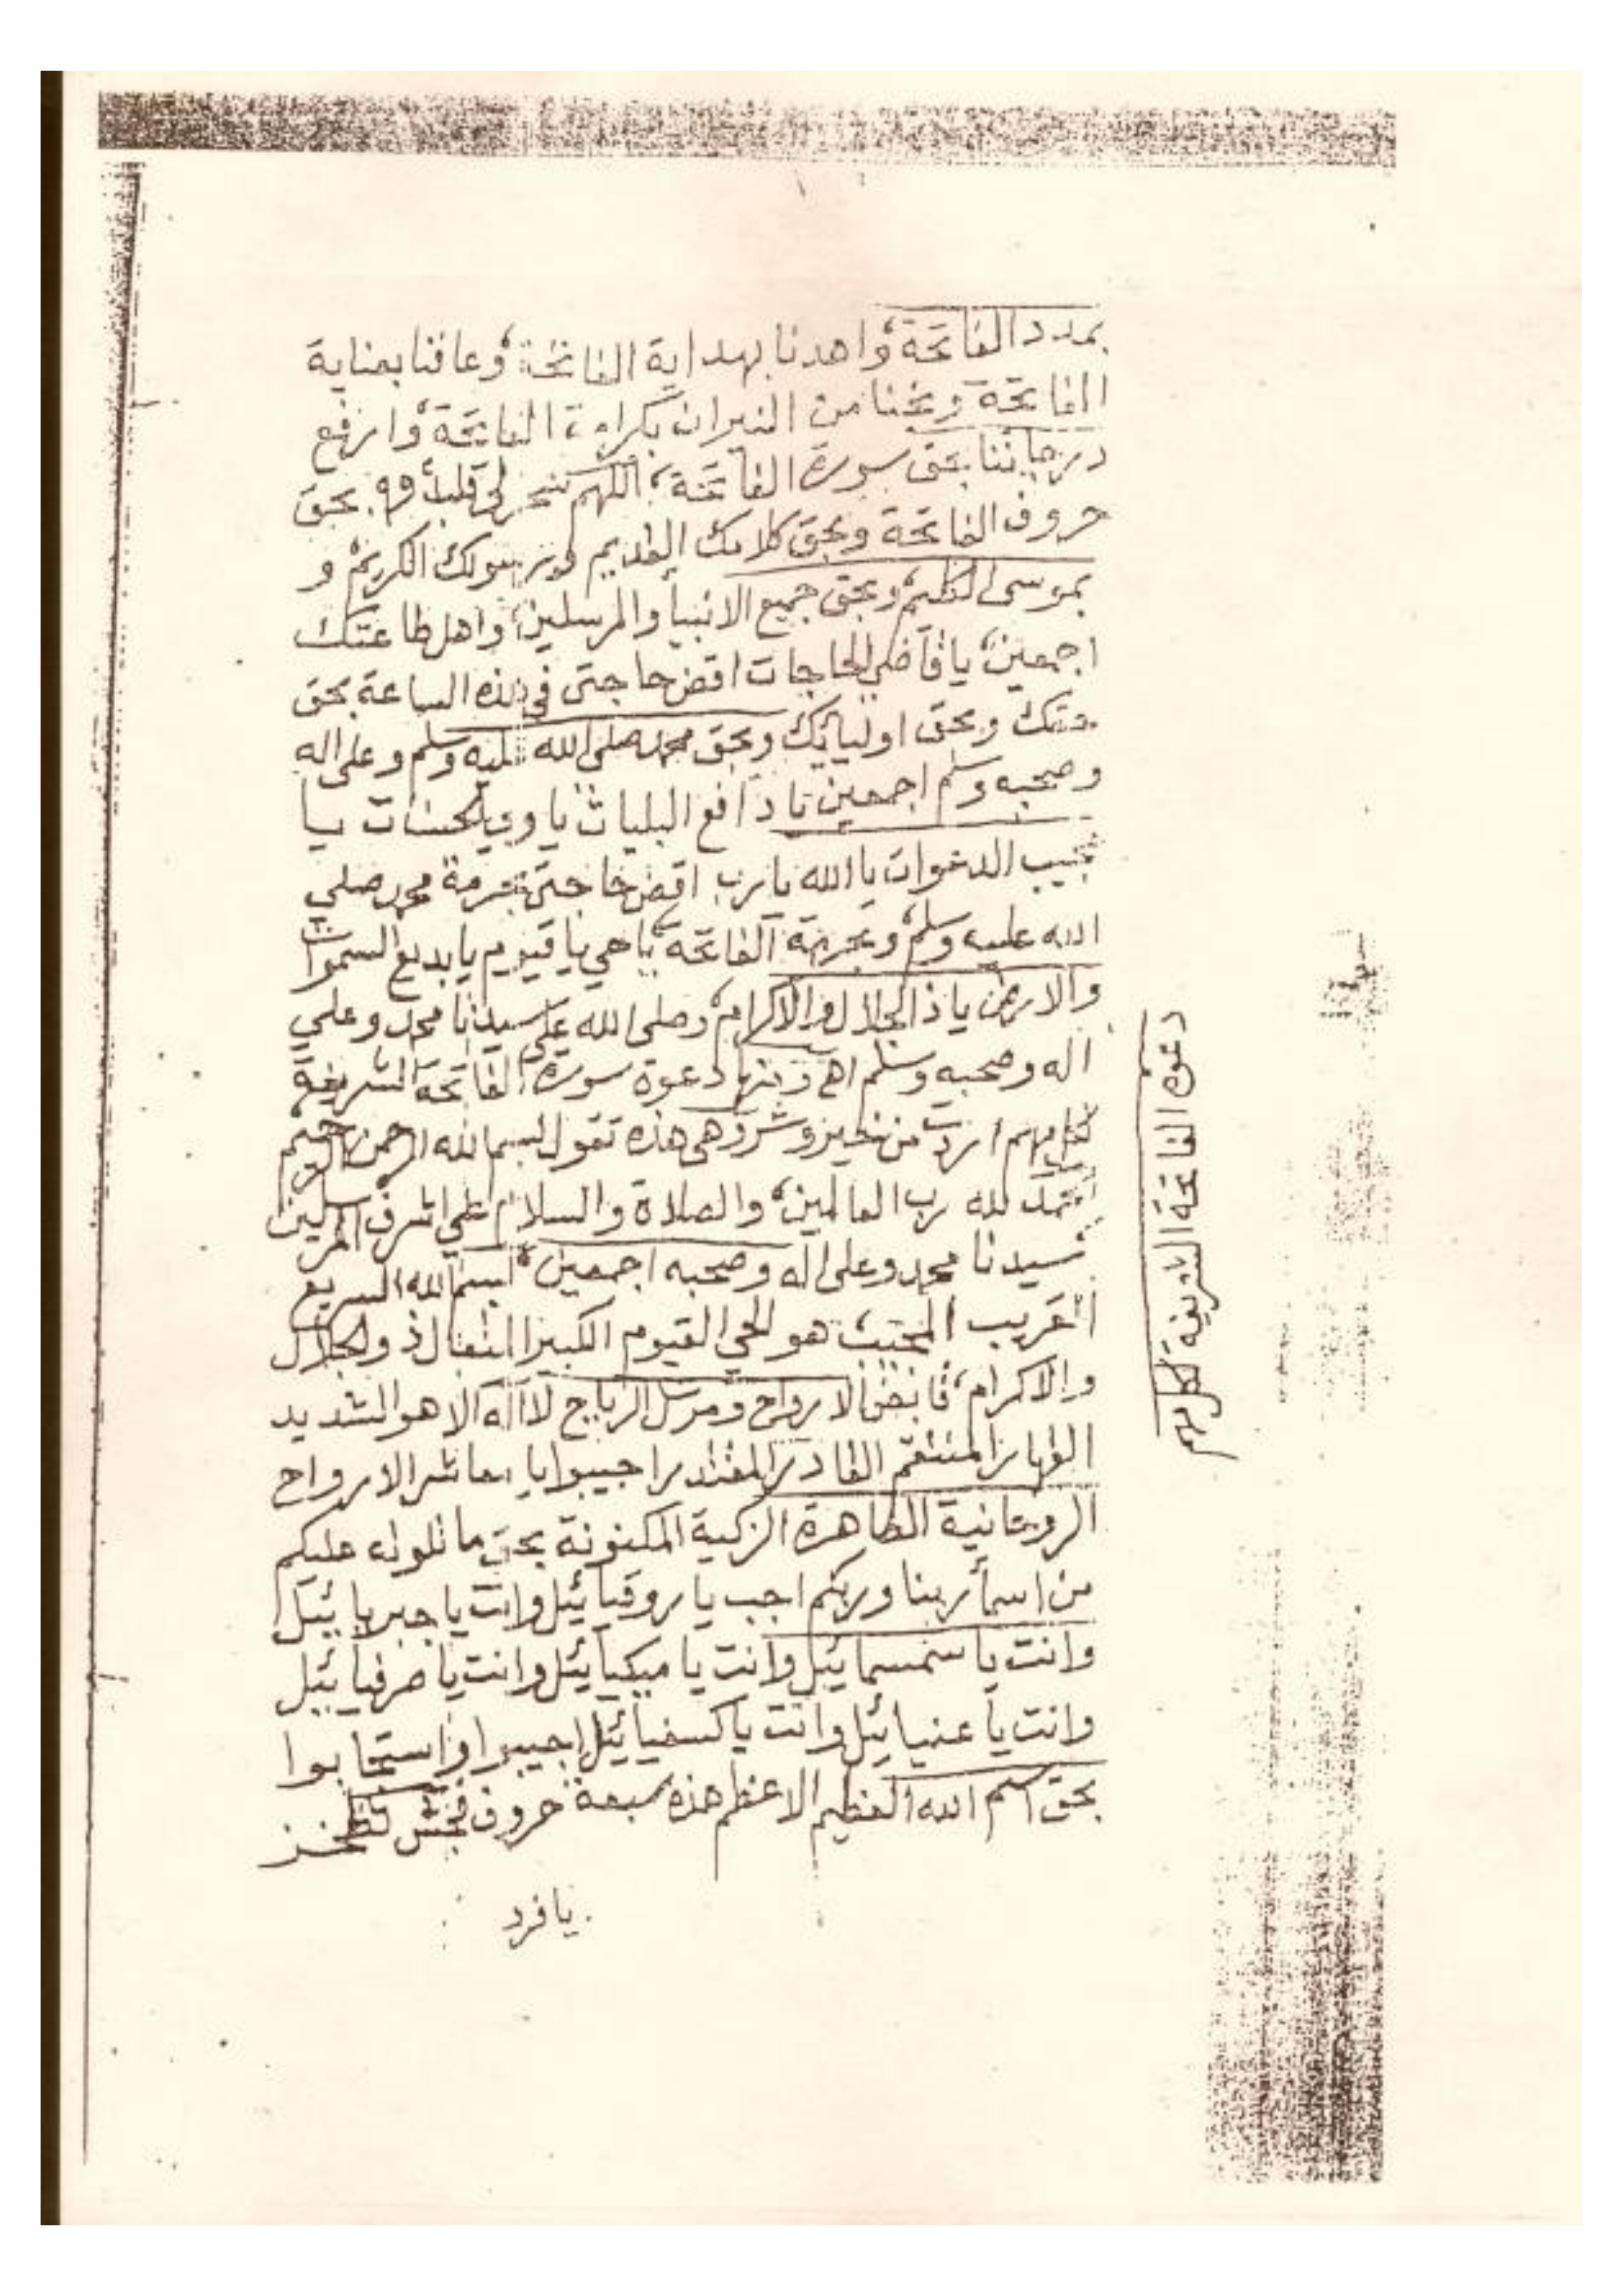 بمدد الفاتحة واهدنا بهداية الفاتحة وعافنا بعناية
الفاتحة ونجنا من النيران بكرامة الفاتحة وارفع
درجاتنا بحق سورة الفاتحة اللهم سخر لي قلب بحق
حروف الفاتحة وبحق كلامك القديم ورسولك الكريم و
بموسى الكليم وبحق جميع الانبيا والمرسلين واهل طاعتك
اجمعين يا قاضي الحاجات اقض حاجتي في هذه الساعة بحق
حقك وبحق اوليائك وبحق محمد صلى الله عليه وسلم وعلى اله
وصحبه وسلم اجمعين يا دافع البليات يا ولي الحسنات يا
مجيب الدعوات يا الله يا رب اقض حاجتي بحرمة محمد صلي
الله عليه وسلم وبحرمة الفاتحة يا حي يا قيوم يا بديع السموات
والارض يا ذالجلال والاكرام وصلى الله على سيدنا محمد وعلي
اله وصحبه وسلم اهـ ومنها دعوة سورة الفاتحة الشريفة
لكل مهم اردت من خير وشر وهي هذه تقول بسم الله الرحمن الرحيم
الحمد لله رب العالمين والصلاة والسلام علي اشرف المرسلين
سيدنا محمد وعلى اله وصحبه اجمعين بسم الله السريع
القريب المجيب هو الحي القيوم الكبير المتعال ذو الجلال
والاكرام قابض الارواح ومرسل الرياح لا اله الا هو الشديد
القهار المنتقم القادر المقتدر اجيبوا يا معاشر الارواح
الروحانية الطاهرة الزكية المكنونة بحق ما تلوته عليكم
من اسمأ ربنا وربكم اجب يا روقيائيل وانت يا جبريائيل
وانت يا سمسمائيل وانت يا ميكيائيل وانت يا صرفيائيل
وانت يا عنيائيل وانت يا كسفيائيل اجيبوا واستجابوا
بحق اسم الله العظيم الاعظم هذه سبعة حروف فجش ثظخز
يا فرد
دعوة الفاتحة الشريفة لكل مهم